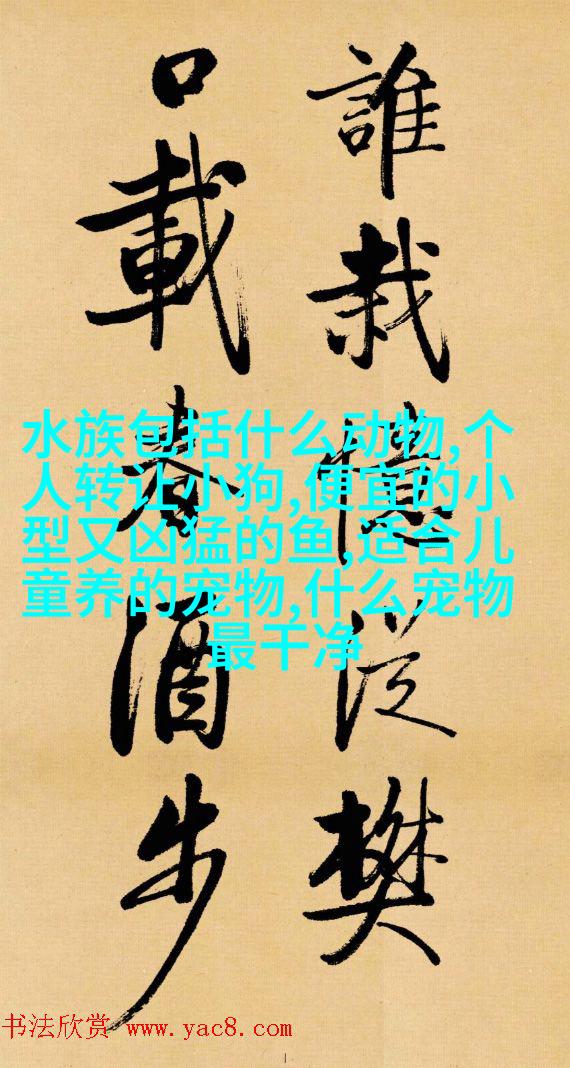 誰栽憶從樊
口載春酒步
水族包括什么动物,个
人转让小狗,便宜的小
型又凶猛的鱼,适合儿
童养的宠物,什么宠物
最干净
书法欣赏 www.yac8.com